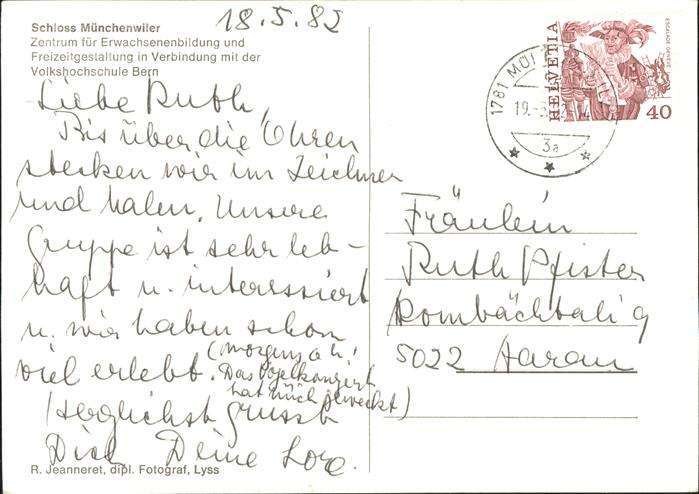 18.5.82
Schloss Münchenwiler
Zentrum für Erwachsenenbildung und
Freizeitgestaltung in Verbindung mit der
Volkshochschule Bern
Liebe Ruth,
Bis über die Ohren
stecken wir im Zeichnen
und Malen. Unsere
Gruppe ist sehr leb-
haft u. interessiert
u. wir haben schon
viel erlebt. (Morgens 4 h,
Das Vogelkonzert
hat mich geweckt)
Herzlichst grüsst
Dich Deine Lore.
R. Jeanneret, dipl. Fotograf, Lyss
HELVETIA
ESCALADE GENÈVE
40
1781
19.
3a
Fräulein
Ruth Pfister
Rombächtali 9
5022 Aarau